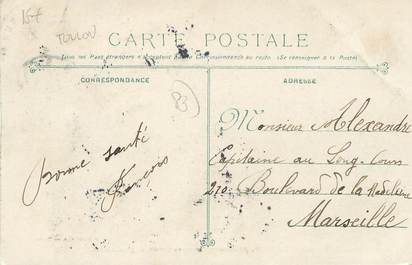 15€
TOULOU
CARTE POSTALE
Tous les Pays étrangers n'acceptent pas la Correspondance au recto. (Se renseigner à la Poste)
CORRESPONDANCE
ADRESSE
83
Bonne santé
François
Monsieur Alexandre
Capitaine au Long-Cours
210 Boulevard de la Madeleine
Marseille